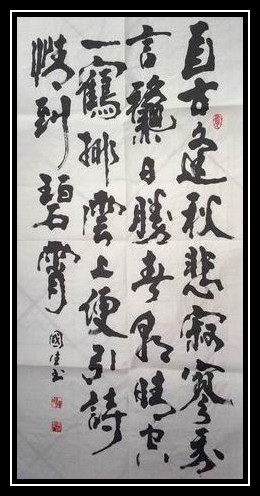 自古逢秋悲寂寥我
言龝日勝春朝晴空
一鶴排雲上便引詩
情到碧霄
國书